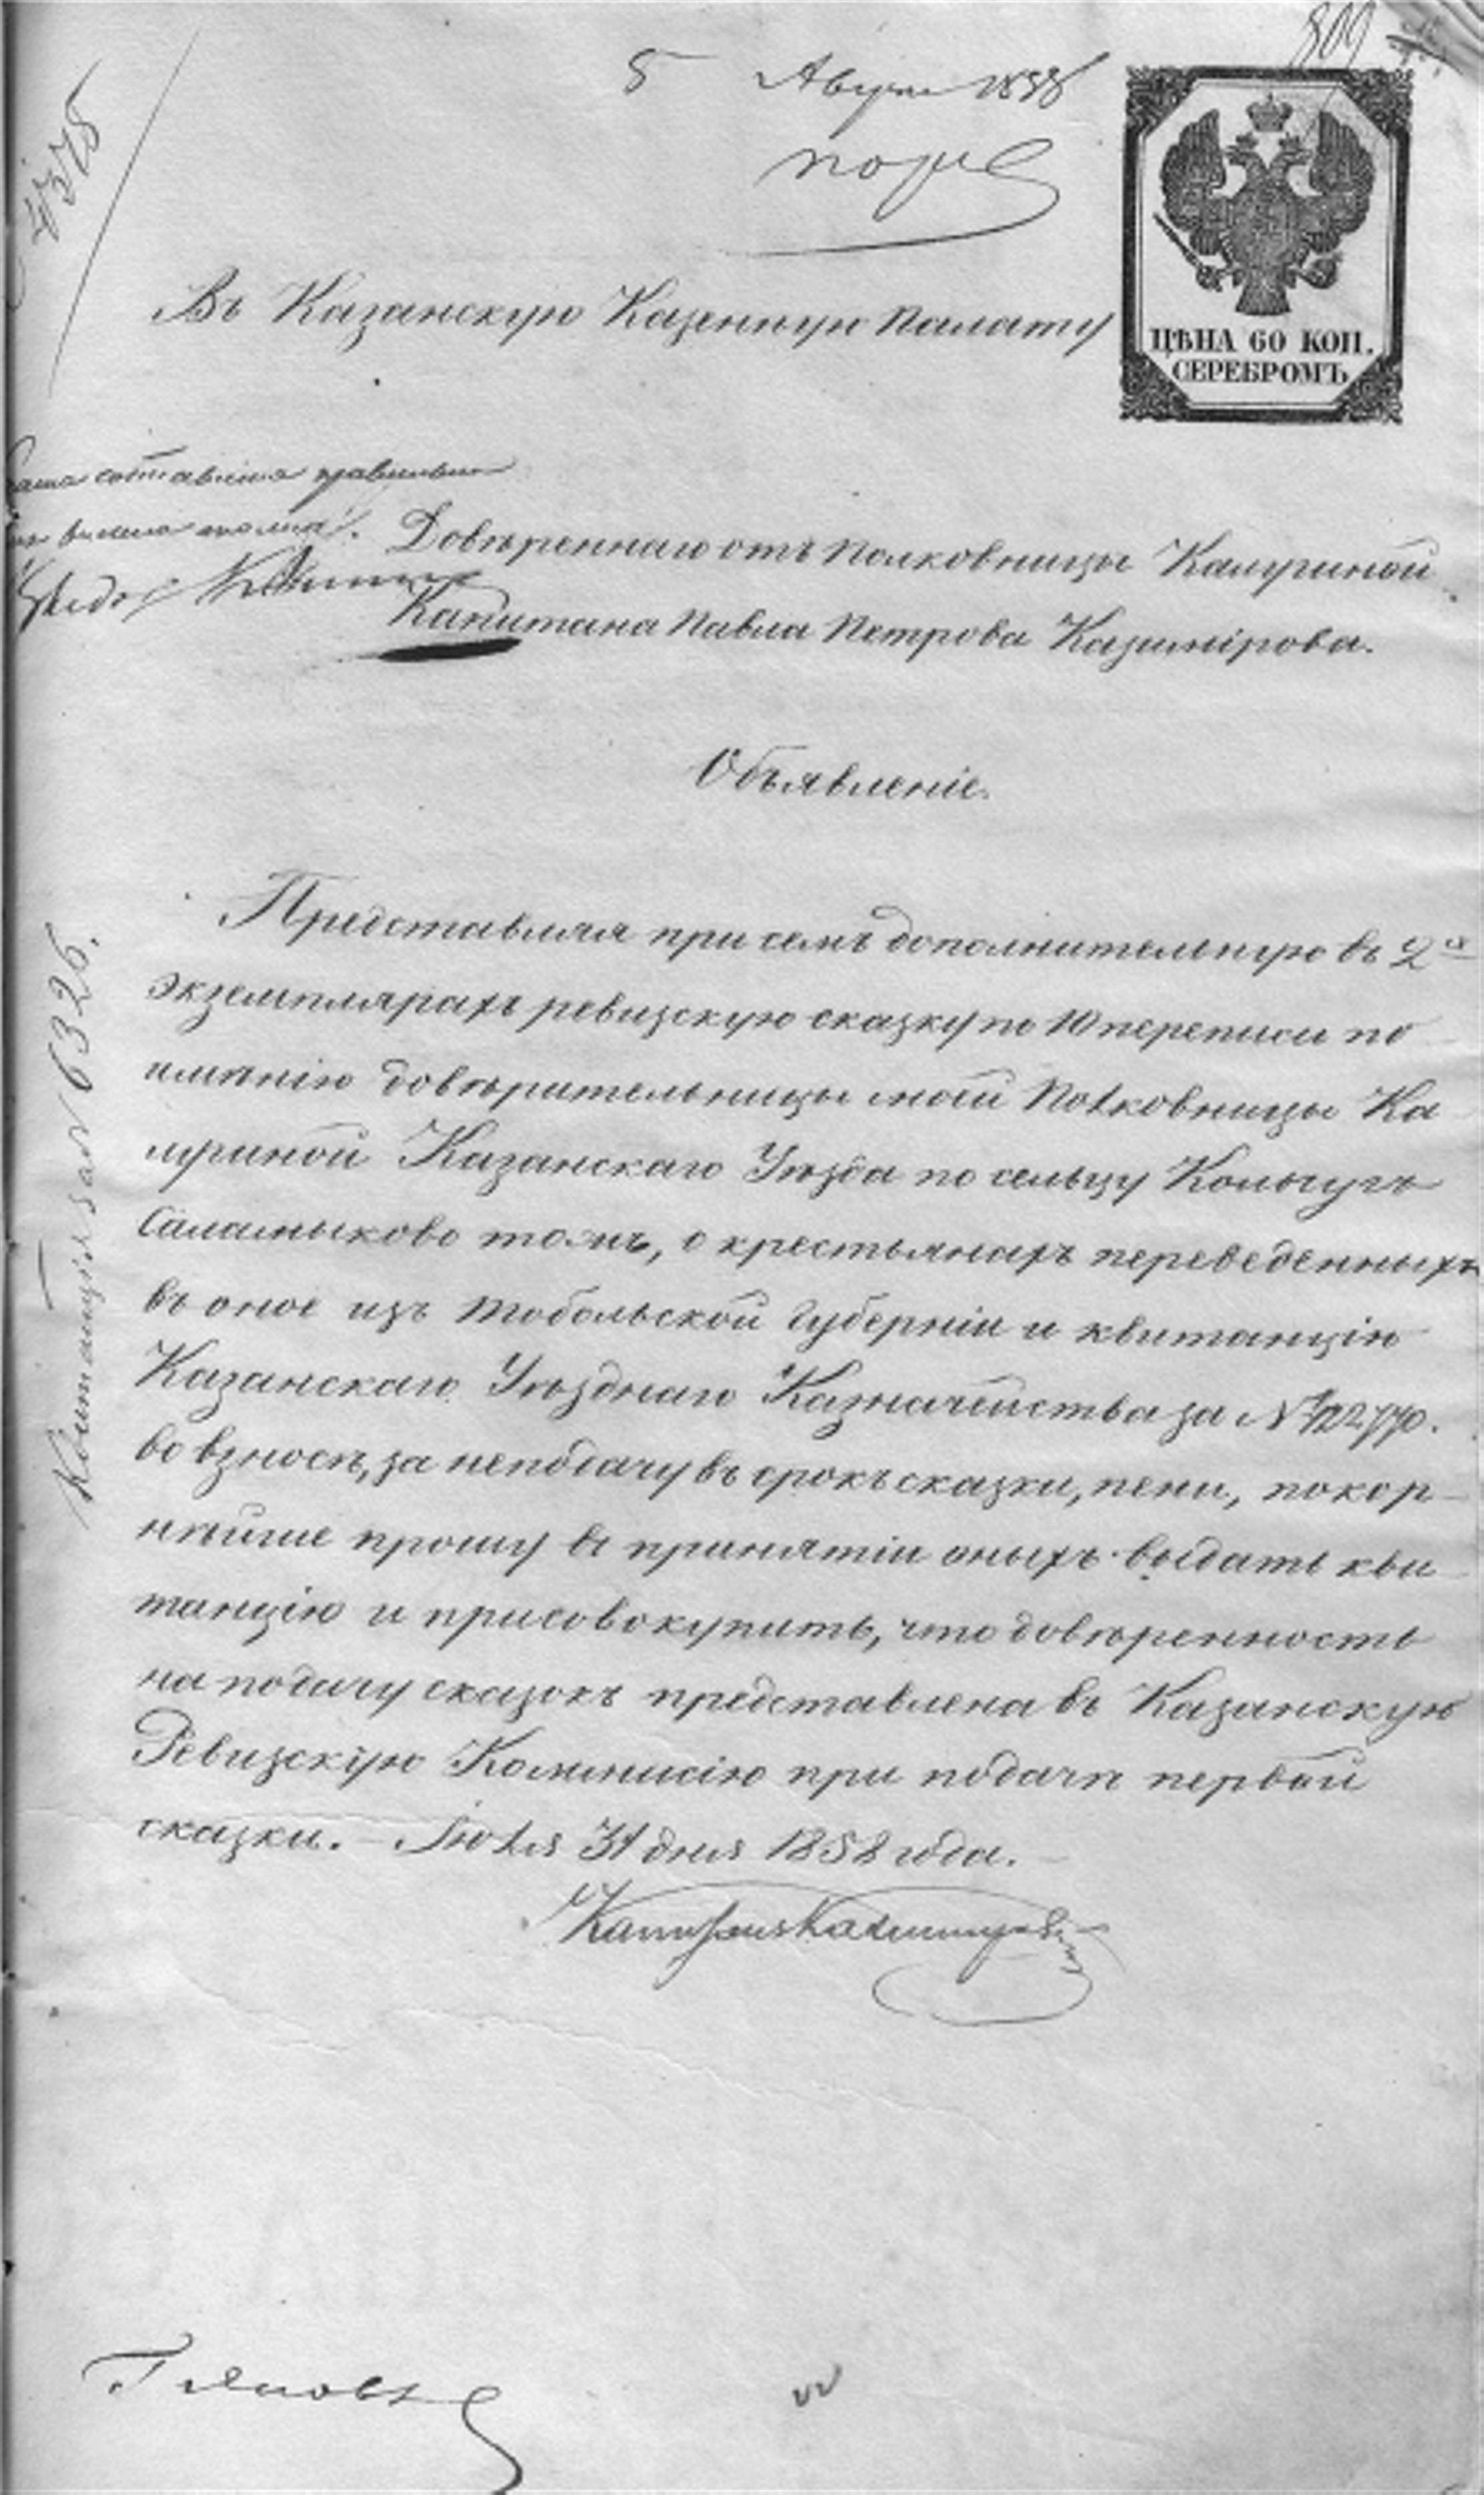 809
5 Августа 1858
4375
Въ Казанскую Казенную Палату
ЦѢНА 60 КОП.
СЕРЕБРОМЪ
составлена правильно
Довѣреннаго отъ Полковницы Камуриной
Капитана Павла Петрова Казимірова.
Объявленіе.
Представляя при семъ дополнительную въ 2хъ
экземплярахъ ревизскую сказку по 10 переписи по
имѣнію довѣрительницы моей Полковницы Ка
муриной Казанскаго Уѣзда по сельцу
Саламыково тожъ, о крестьянахъ переведенныхъ
въ оное изъ Тобольской Губерніи и квитанцію
Казанскаго Уѣзднаго Казначейства за №
во взносѣ, за неподачу въ срокъ сказки, пени, покор-
нѣйше прошу въ принятіи оныхъ выдать кви
танцію и присовокупить, что довѣренность
на подачу сказокъ представлена въ Казанскую
Ревизскую Коммисію при подачѣ первой
сказки. – Іюля 31 дня 1858 года.
Капитанъ Казимировъ
Квитанція за № 6326.